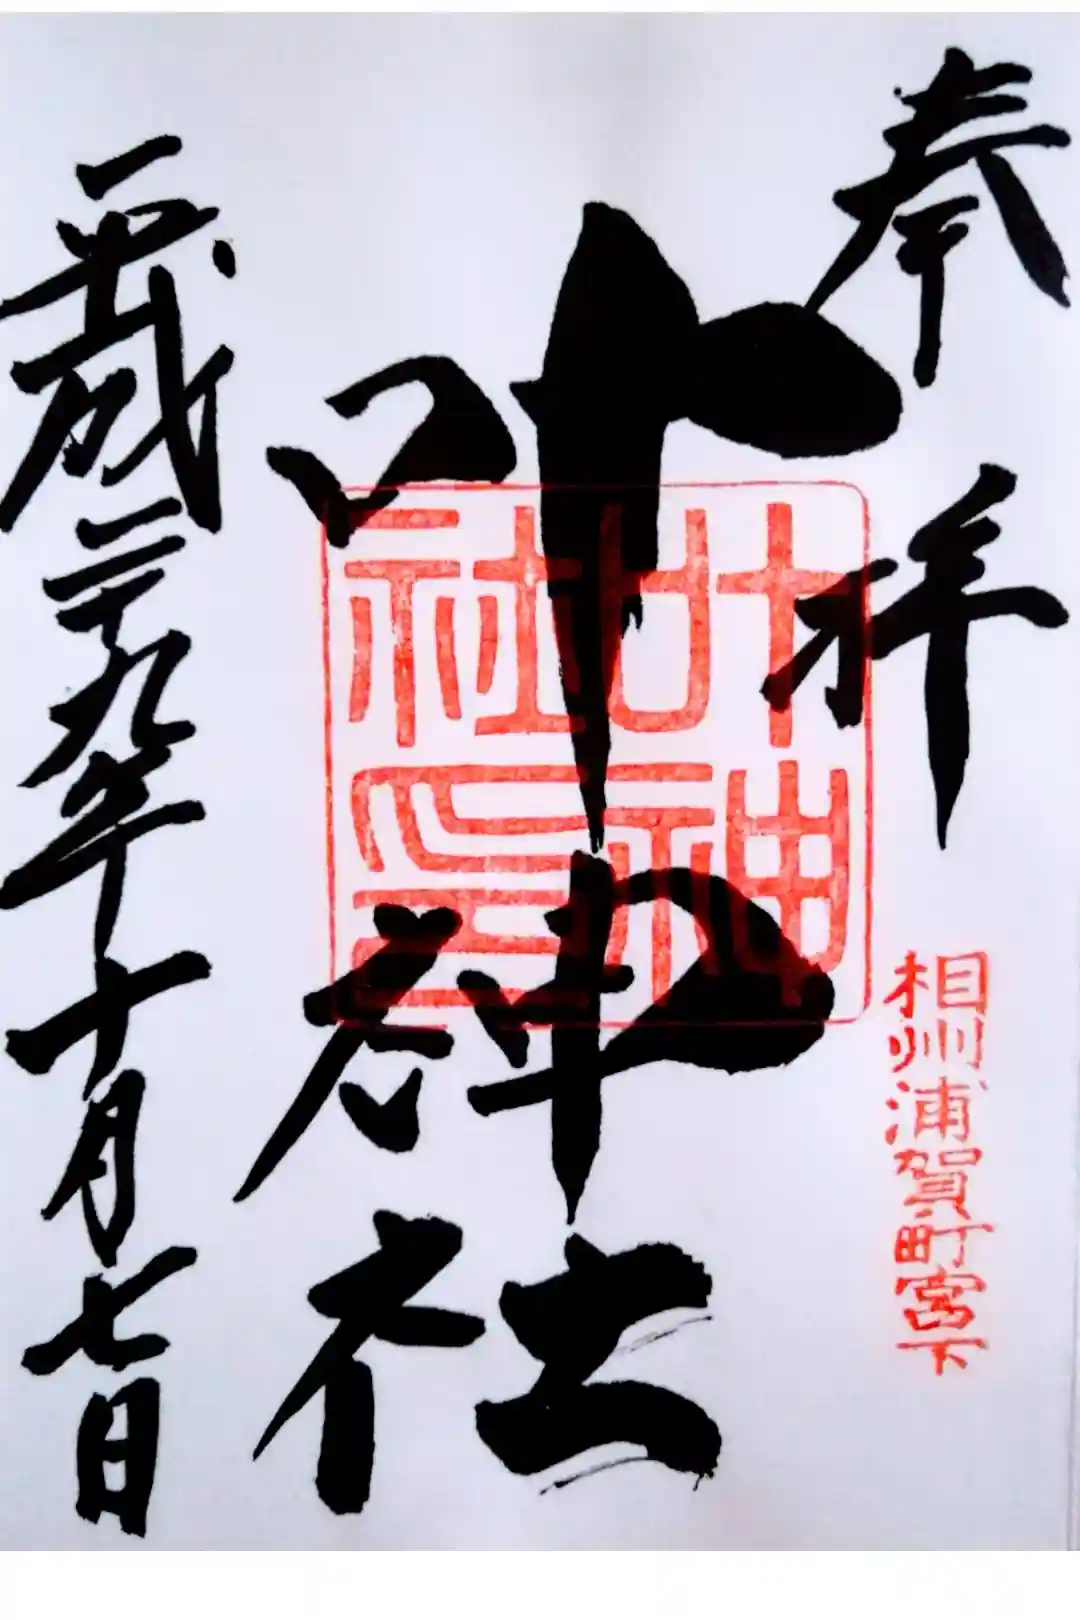 奉拝
相州浦賀町宮下
叶神社
叶神
社印
平成二十九年十月七日